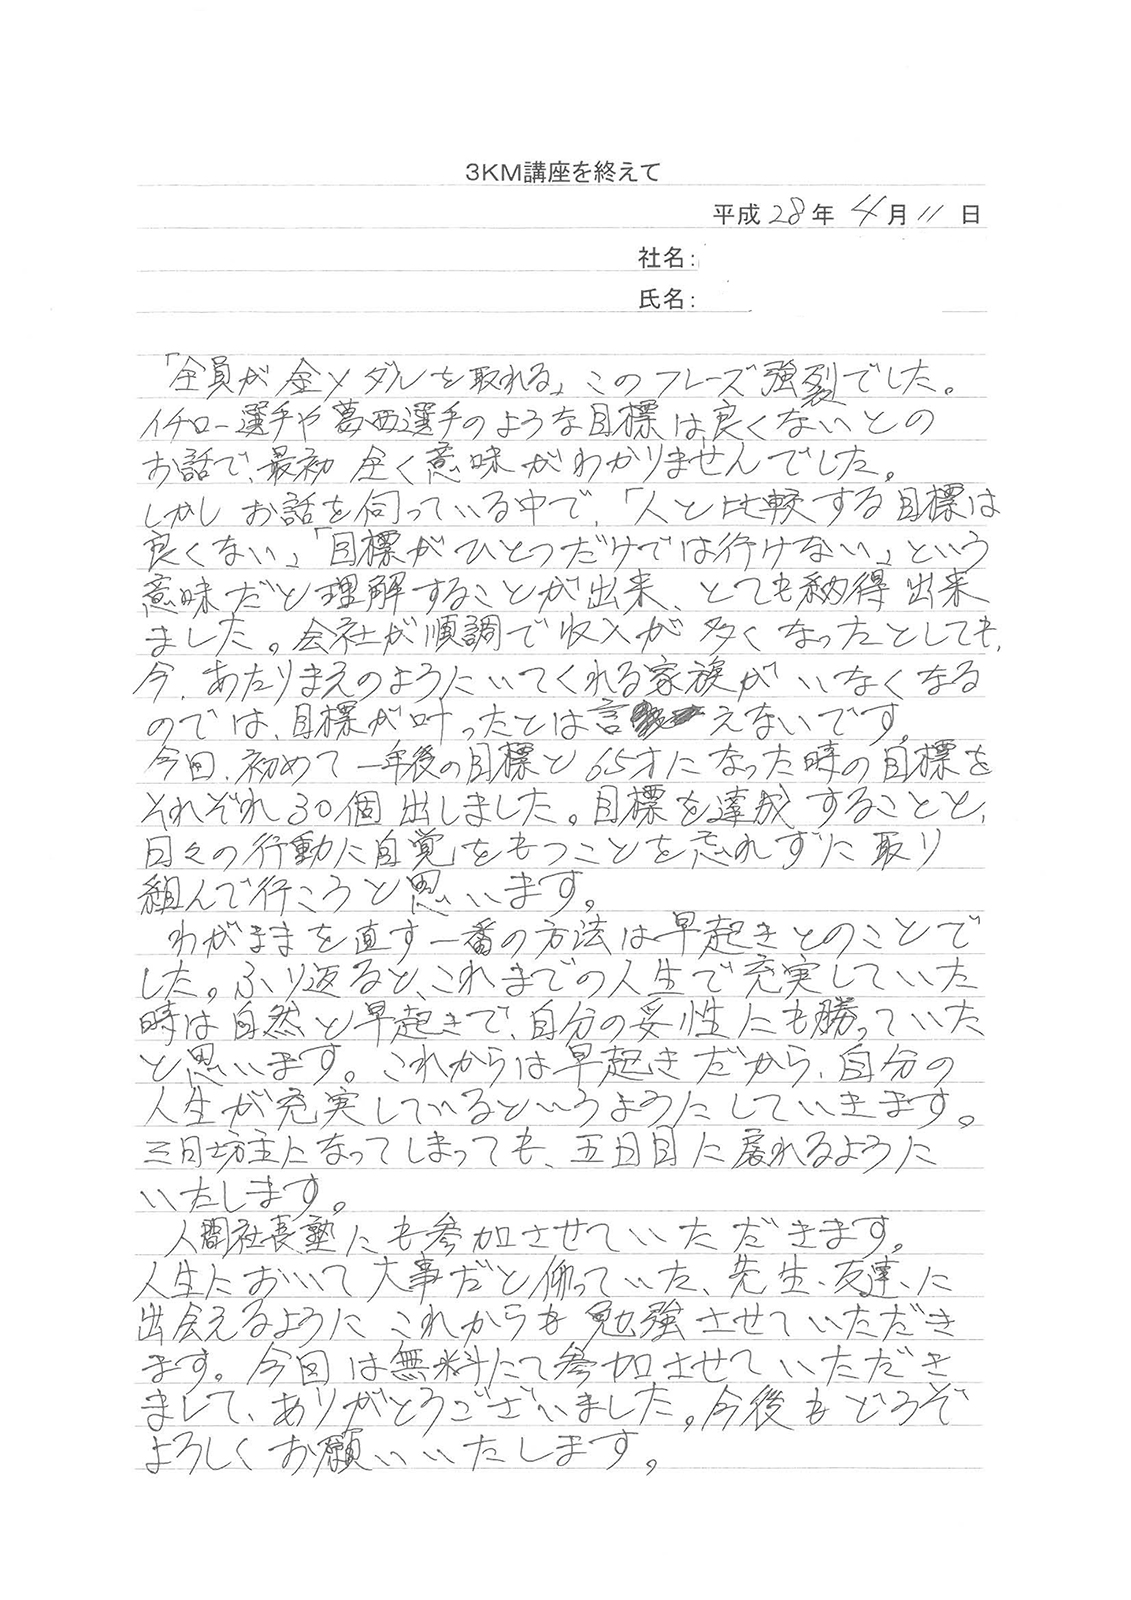 3KM講座を終えて
平成28年 4月11日
社名:
氏名:
「全員が金メダルを取れる」このフレーズ強裂でした。
イチロー選手や葛西選手のような目標は良くないとの
お話で、最初 全く意味がわかりませんでした。
しかし お話を伺っている中で、「人と比較する目標は
良くない」「目標がひとつだけでは行けない」という
意味だと理解することが出来、とても納得出来
ました。会社が順調で収入が多くなったとしても、
今、あたりまえのようにいてくれる家族がいなくなる
のでは、目標が叶ったとは言えないです。
今回、初めて一年後の目標と65才になった時の目標を
それぞれ30個出しました。目標を達成することと、
日々の行動に自覚をもつことを忘れずに取り
組んで行こうと思います。
わがままを直す一番の方法は早起きとのことで
した。ふり返ると、これまでの人生で充実していた
時は自然と早起きで、自分の妥性にも勝っていた
と思います。これからは早起きだから、自分の
人生が充実しているというようにしていきます。
三日坊主になってしまっても、五日目に戻れるように
いたします。
人間社長塾にも参加させていただきます。
人生において大事だと働っていた、先生、友達、に
出会えるように これからも勉強させていただき
ます。今回は無料にて参加させていただき
まして、ありがとうございました。今後もどうぞ
よろしくお願いいたします。